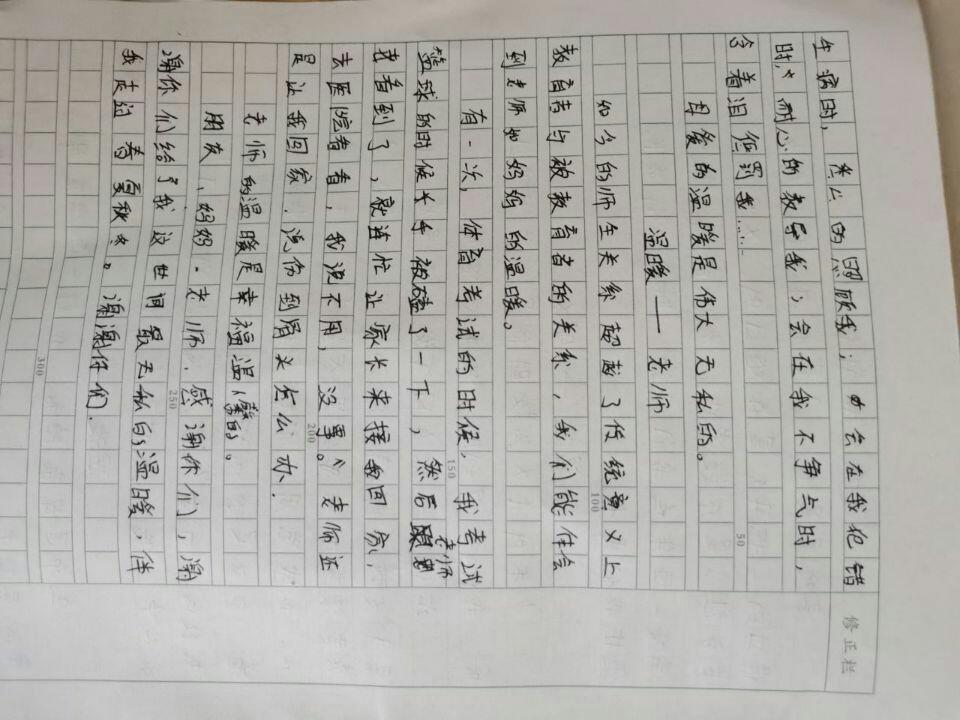 生病时，关心的照顾我；会在我犯错
时，耐心的教导我；会在我不争气时，
含着泪惩罚我……
50
母爱的温暖是伟大无私的。
温暖——老师
如今的师生关系超越了传统意义上
100
教育者与被教育者的关系，我们能体会
到老师如妈妈的温暖。
有一次，体育考试的时候，我考试
150
篮球的时候大手被磕了一下，然后老师
看到了，就连忙让家长来接我回家，
200
去医院看看，我说不用，没事。老师还
是让我回家．说伤到骨头怎么办．
老师的温暖是幸福温馨的。
朋友、妈妈．老师．感谢你们，谢
250
谢你们给了我这世间最无私的温暖，伴
我走过春夏秋冬。谢谢你们．
300
修正栏